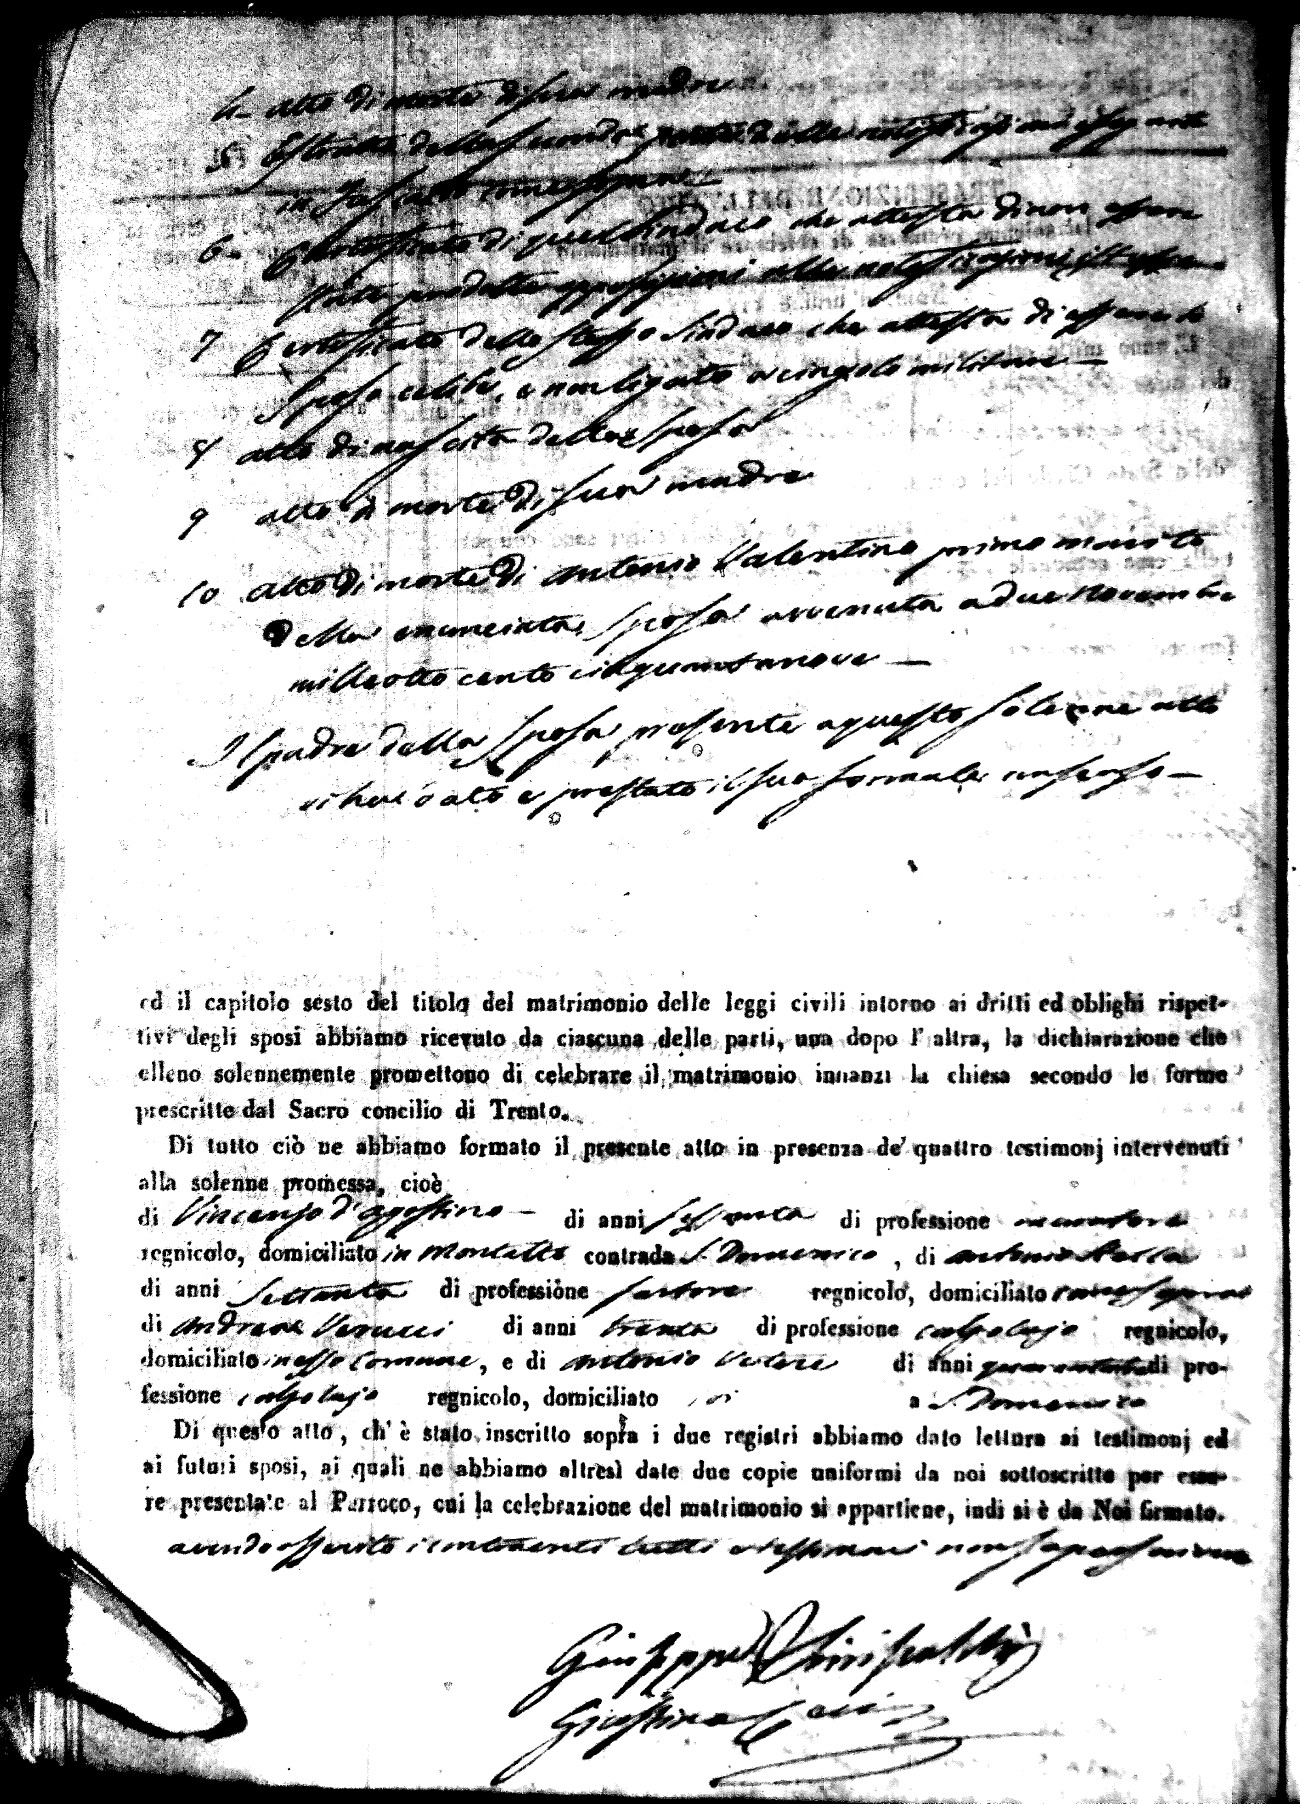 4- atto di morte di sua madre
5- Estratto della seconda
in
6- Certificato di quel Sindaco che attesta di non essere
state prodotte opposizioni alle notificazioni
7 Certificato dello stesso Sindaco che attesta di essere lo
Sposo celibe, e non legato a cingolo militare —
8 atto di nascita della sposa
9 atto di morte di sua madre
10 atto di morte di Antonio Valentino primo marito
della enunciata sposa avvenuta a due novembre
milleottocento cinquantanove —
Il padre della sposa presente a questo solenne atto
ha dato e prestato il suo formale consenso —
ed il capitolo sesto del titolo del matrimonio delle leggi civili intorno ai dritti ed oblighi rispet-
tivi degli sposi abbiamo ricevuto da ciascuna delle parti, una dopo l' altra, la dichiarazione che
elleno solennemente promettono di celebrare il matrimonio innanzi la chiesa secondo le forme
prescritte dal Sacro concilio di Trento.
Di tutto ciò ne abbiamo formato il presente atto in presenza de' quattro testimonj intervenuti
alla solenne promessa, cioè
di Vincenzo d'agostino — di anni sessanta di professione muratore
regnicolo, domiciliato in Montalto contrada S. Domenico, di Antonio
di anni Settanta di professione sartore regnicolo, domiciliato
di Andrea di anni trenta di professione calzolajo regnicolo,
domiciliato nesso Comune, e di Antonio di anni di pro-
fessione calzolajo regnicolo, domiciliato ivi a S. Domenico
Di questo atto, ch' è stato inscritto sopra i due registri abbiamo dato lettura ai testimonj ed
ai futuri sposi, ai quali ne abbiamo altresì date due copie uniformi da noi sottoscritte per esse-
re presentate al Parroco, cui la celebrazione del matrimonio si appartiene, indi si è da Noi firmato.
avendo asserito i contraenti tutti e testimoni non saper scrivere
Giuseppe